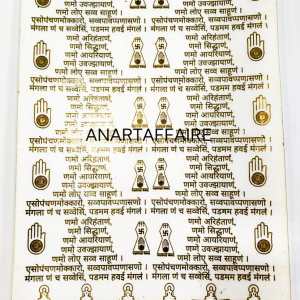 णमो उवज्झायाणं,
णमो लोए सव्व साहूणं।
णमो उवज्झायाणं,
णमो लोए सव्व साहूणं।
एसोपंचणमोक्कारो, सव्वपावप्पणासणो
मंगला णं च सव्वेसिं, पडमम हवई मंगलं
एसोपंचणमोक्कारो, सव्वपावप्पणासणो
मंगला णं च सव्वेसिं, पडमम हवई मंगलं
णमो अरिहंताणं,
णमो सिद्धाणं,
णमो आयरियाणं,
णमो उवज्झायाणं,
णमो लोए सव्व साहूणं।
णमो अरिहंताणं,
णमो सिद्धाणं,
णमो आयरियाणं,
णमो उवज्झायाणं,
णमो लोए सव्व साहूणं।
एसोपंचणमोक्कारो, सव्वपावप्पणासणो
मंगला णं च सव्वेसिं, पडमम हवई मंगलं
एसोपंचणमोक्कारो, सव्वपावप्पणासणो
मंगला णं च सव्वेसिं, पडमम हवई मंगलं
णमो अरिहंताणं,
णमो सिद्धाणं,
णमो आयरियाणं,
णमो उवज्झायाणं,
णमो लोए सव्व साहूणं।
णमो अरिहंताणं,
णमो सिद्धाणं,
णमो आयरियाणं,
णमो उवज्झायाणं,
णमो लोए सव्व साहूणं।
ANARTAFFAIRE
एसोपंचणमोक्कारो, सव्वपावप्पणासणो
मंगला णं च सव्वेसिं, पडमम हवई मंगलं
एसोपंचणमोक्कारो, सव्वपावप्पणासणो
मंगला णं च सव्वेसिं, पडमम हवई मंगलं
णमो अरिहंताणं,
णमो सिद्धाणं,
णमो आयरियाणं,
णमो उवज्झायाणं,
णमो लोए सव्व साहूणं।
णमो अरिहंताणं,
णमो सिद्धाणं,
णमो आयरियाणं,
णमो उवज्झायाणं,
णमो लोए सव्व साहूणं।
एसोपंचणमोक्कारो, सव्वपावप्पणासणो
मंगला णं च सव्वेसिं, पडमम हवई मंगलं
एसोपंचणमोक्कारो, सव्वपावप्पणासणो
मंगला णं च सव्वेसिं, पडमम हवई मंगलं